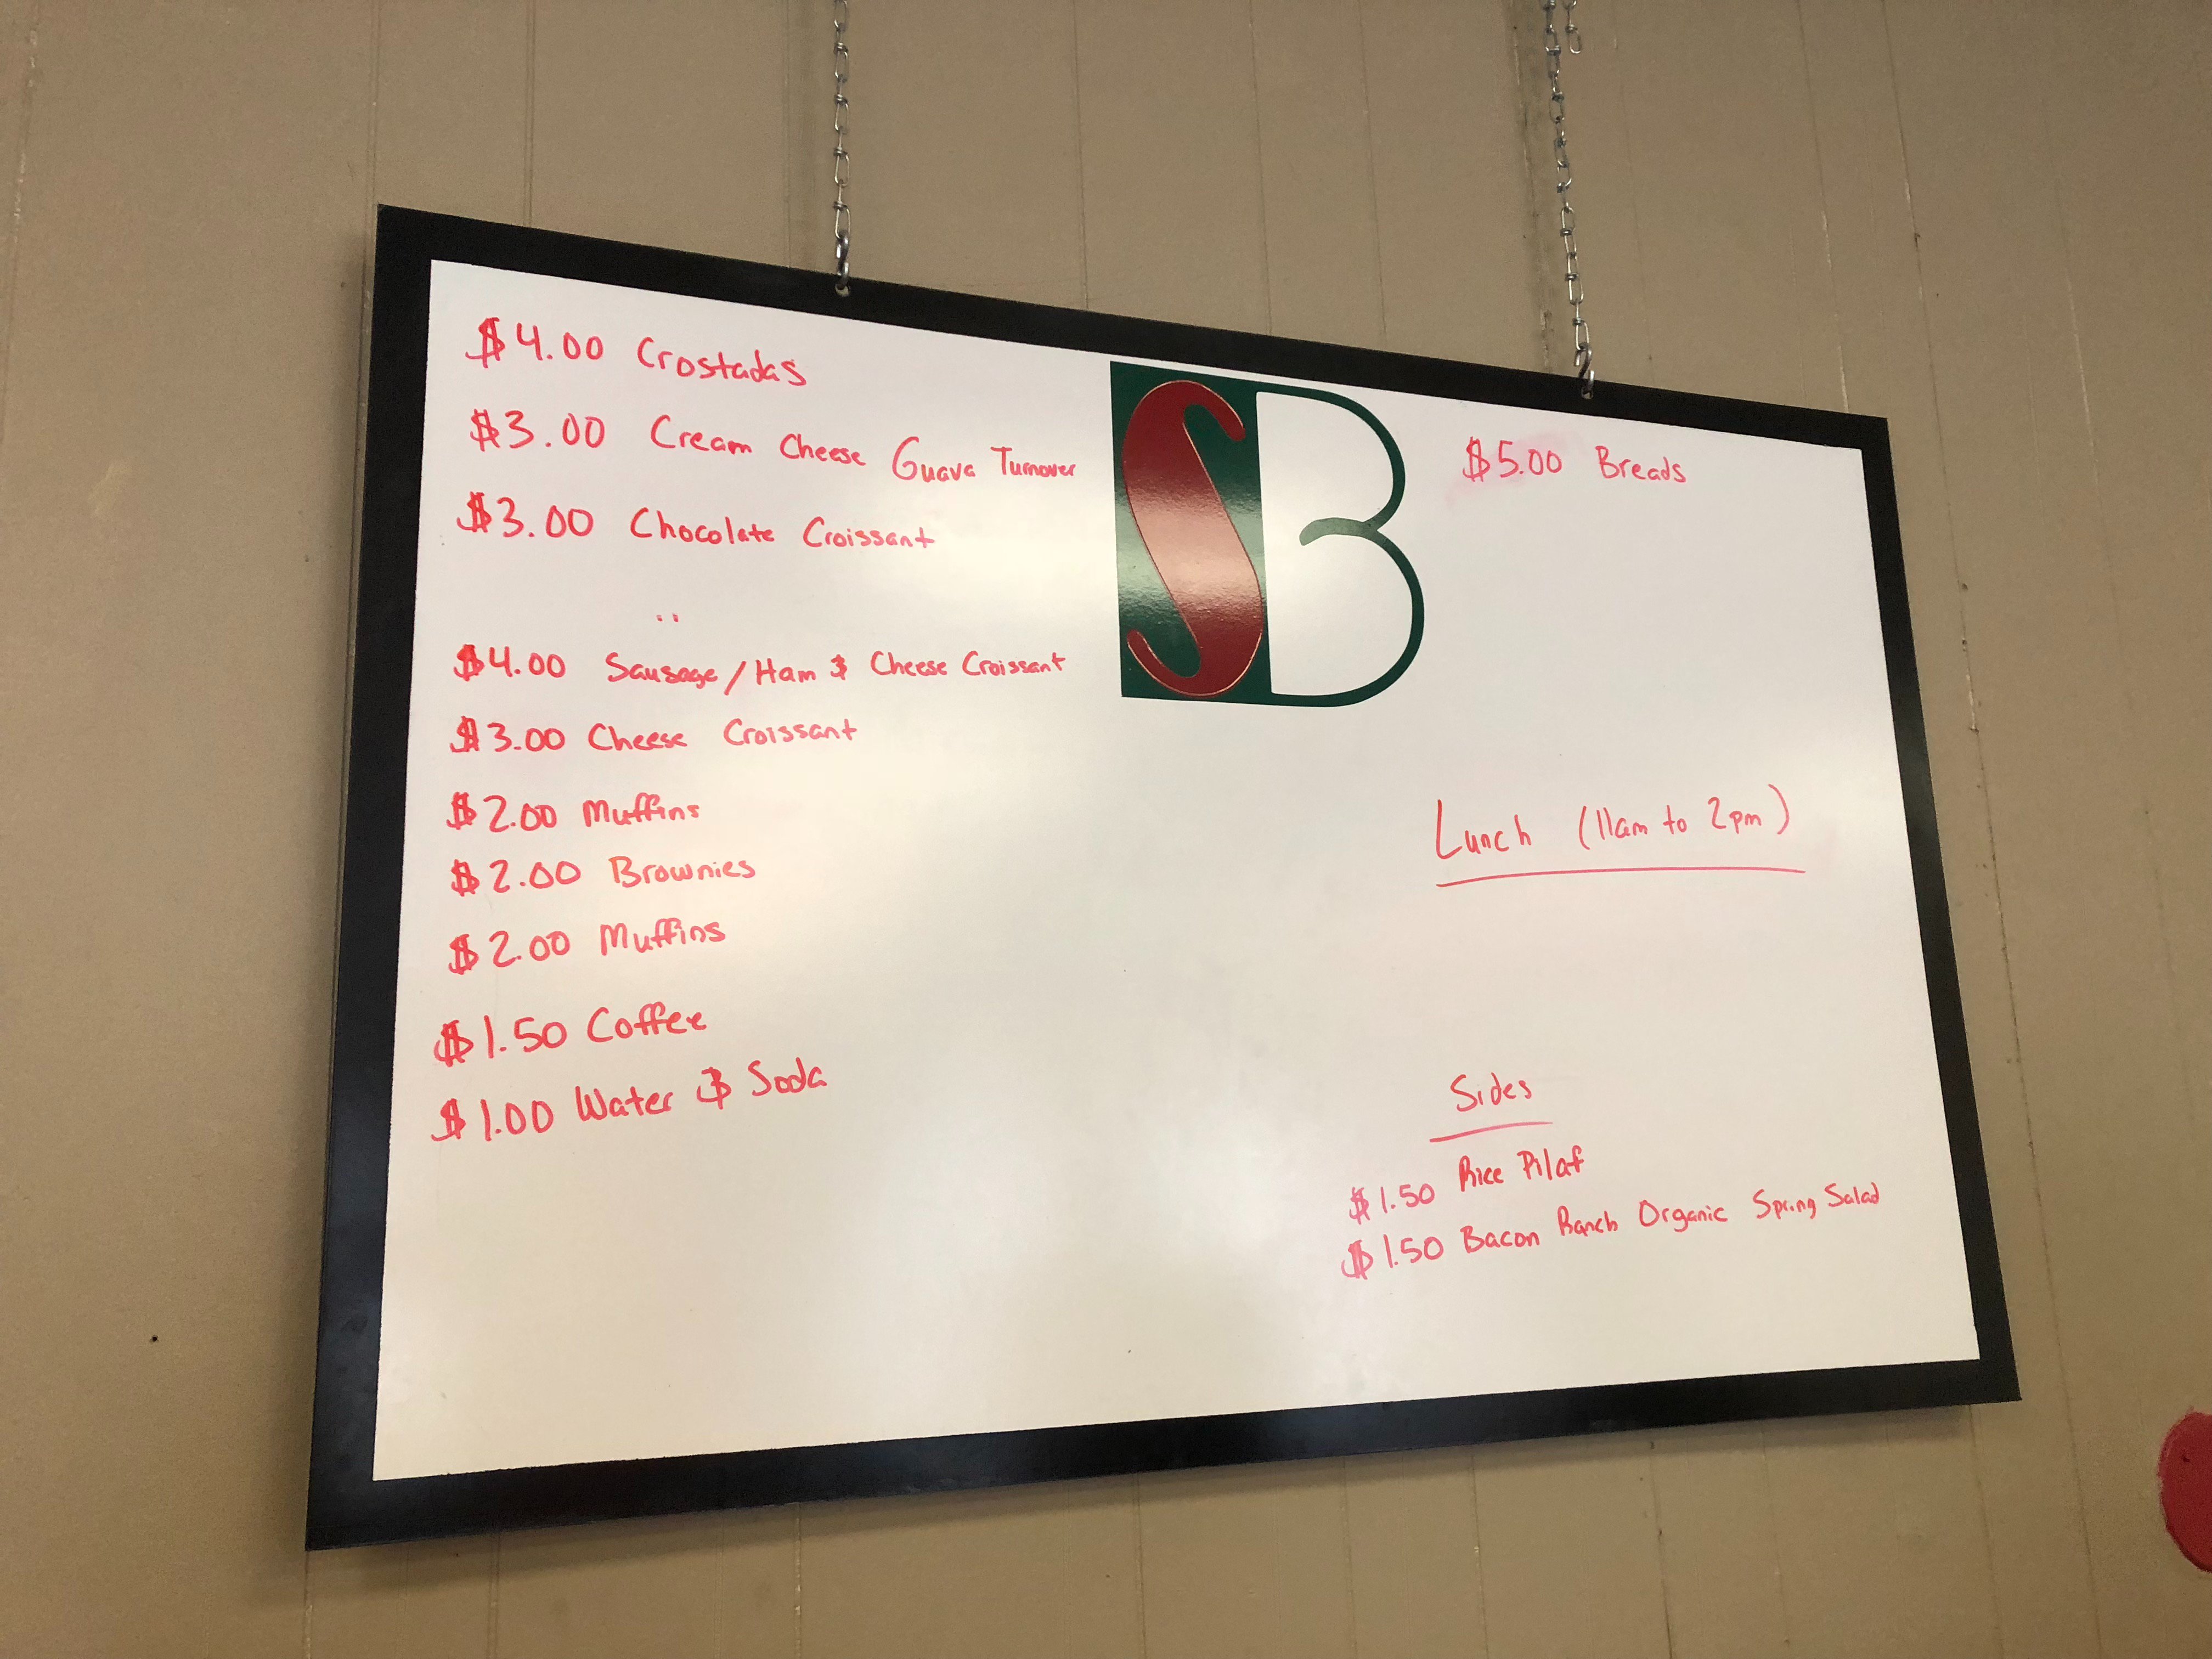 $4.00 Crostadas
$3.00 Cream Cheese Guava Turnover
$3.00 Chocolate Croissant
$4.00 Sausage / Ham & Cheese Croissant
$3.00 Cheese Croissant
$2.00 Muffins
$2.00 Brownies
$2.00 Muffins
$1.50 Coffee
$1.00 Water & Soda
SB
$5.00 Breads
Lunch (11am to 2pm)
Sides
$1.50 Rice Pilaf
$1.50 Bacon Ranch Organic Spring Salad